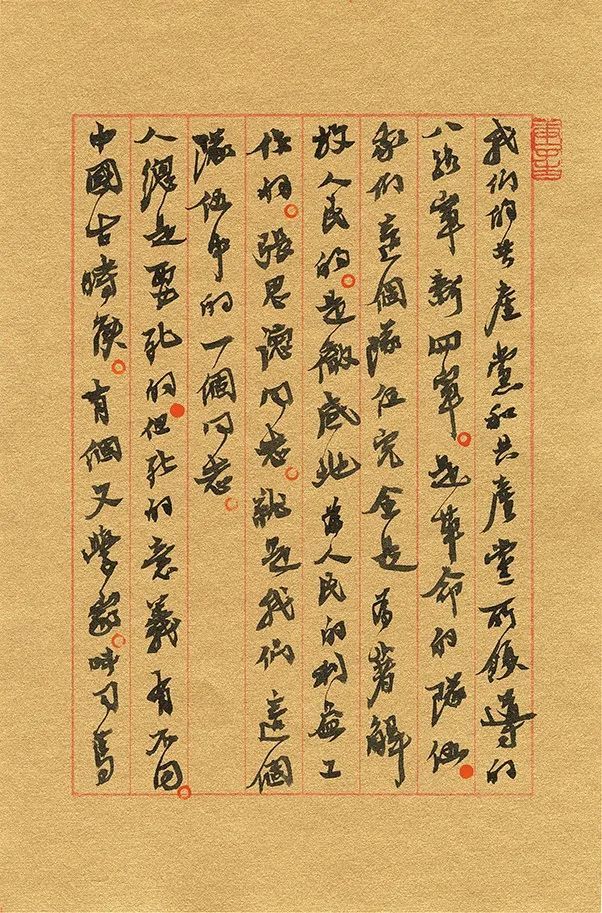 我們的共產黨和共產黨所領導的
八路軍新四軍。是革命的隊伍●
我們這個隊伍完全是為著解
放人民的。是徹底地為人民的利益工
作的。張思德同志。就是我們這個
隊伍中的一個同志。
人總是要死的●但死的意義有不同。
中國古時候。有個文學家。叫司馬